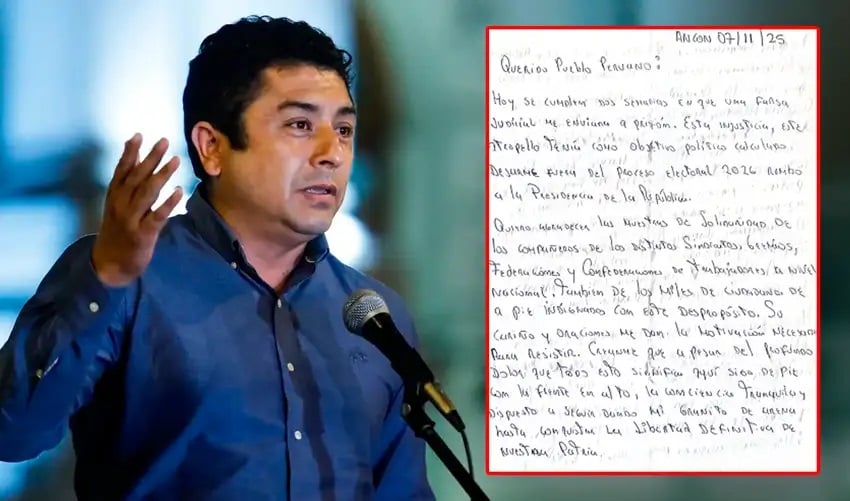 ANCON 07/11/25
QUERIDO PUEBLO PERUANO:
Hoy se cumplen dos semanas en que una farsa
judicial me enviara a prisión. Esta injusticia, este
atropello tenía como objetivo político calculado
DEJARME FUERA DEL PROCESO ELECTORAL 2026 RUMBO
A LA PRESIDENCIA DE LA REPÚBLICA.
QUIERO AGRADECER LAS MUESTRAS DE SOLIDARIDAD DE
LOS COMPAÑEROS DE LOS DISTINTOS SINDICATOS, GREMIOS,
FEDERACIONES Y CONFEDERACIONES DE TRABAJADORES A NIVEL
NACIONAL. TAMBIÉN DE LOS MILES DE CIUDADANOS DE
A PIE INDIGNADOS CON ESTE DESPROPÓSITO. SU
CARIÑO Y ORACIONES ME DAN LA MOTIVACIÓN NECESARIA
PARA RESISTIR. CREANME QUE A PESAR DEL PROFUNDO
DOLOR QUE TODO ESTO SIGNIFICA AQUÍ SIGO DE PIE
CON LA FRENTE EN ALTO, LA CONSCIENCIA TRANQUILA Y
DISPUESTO A SEGUIR DANDO MI GRANITO DE ARENA
HASTA CONQUISTAR LA LIBERTAD DEFINITIVA DE
NUESTRA PATRIA.